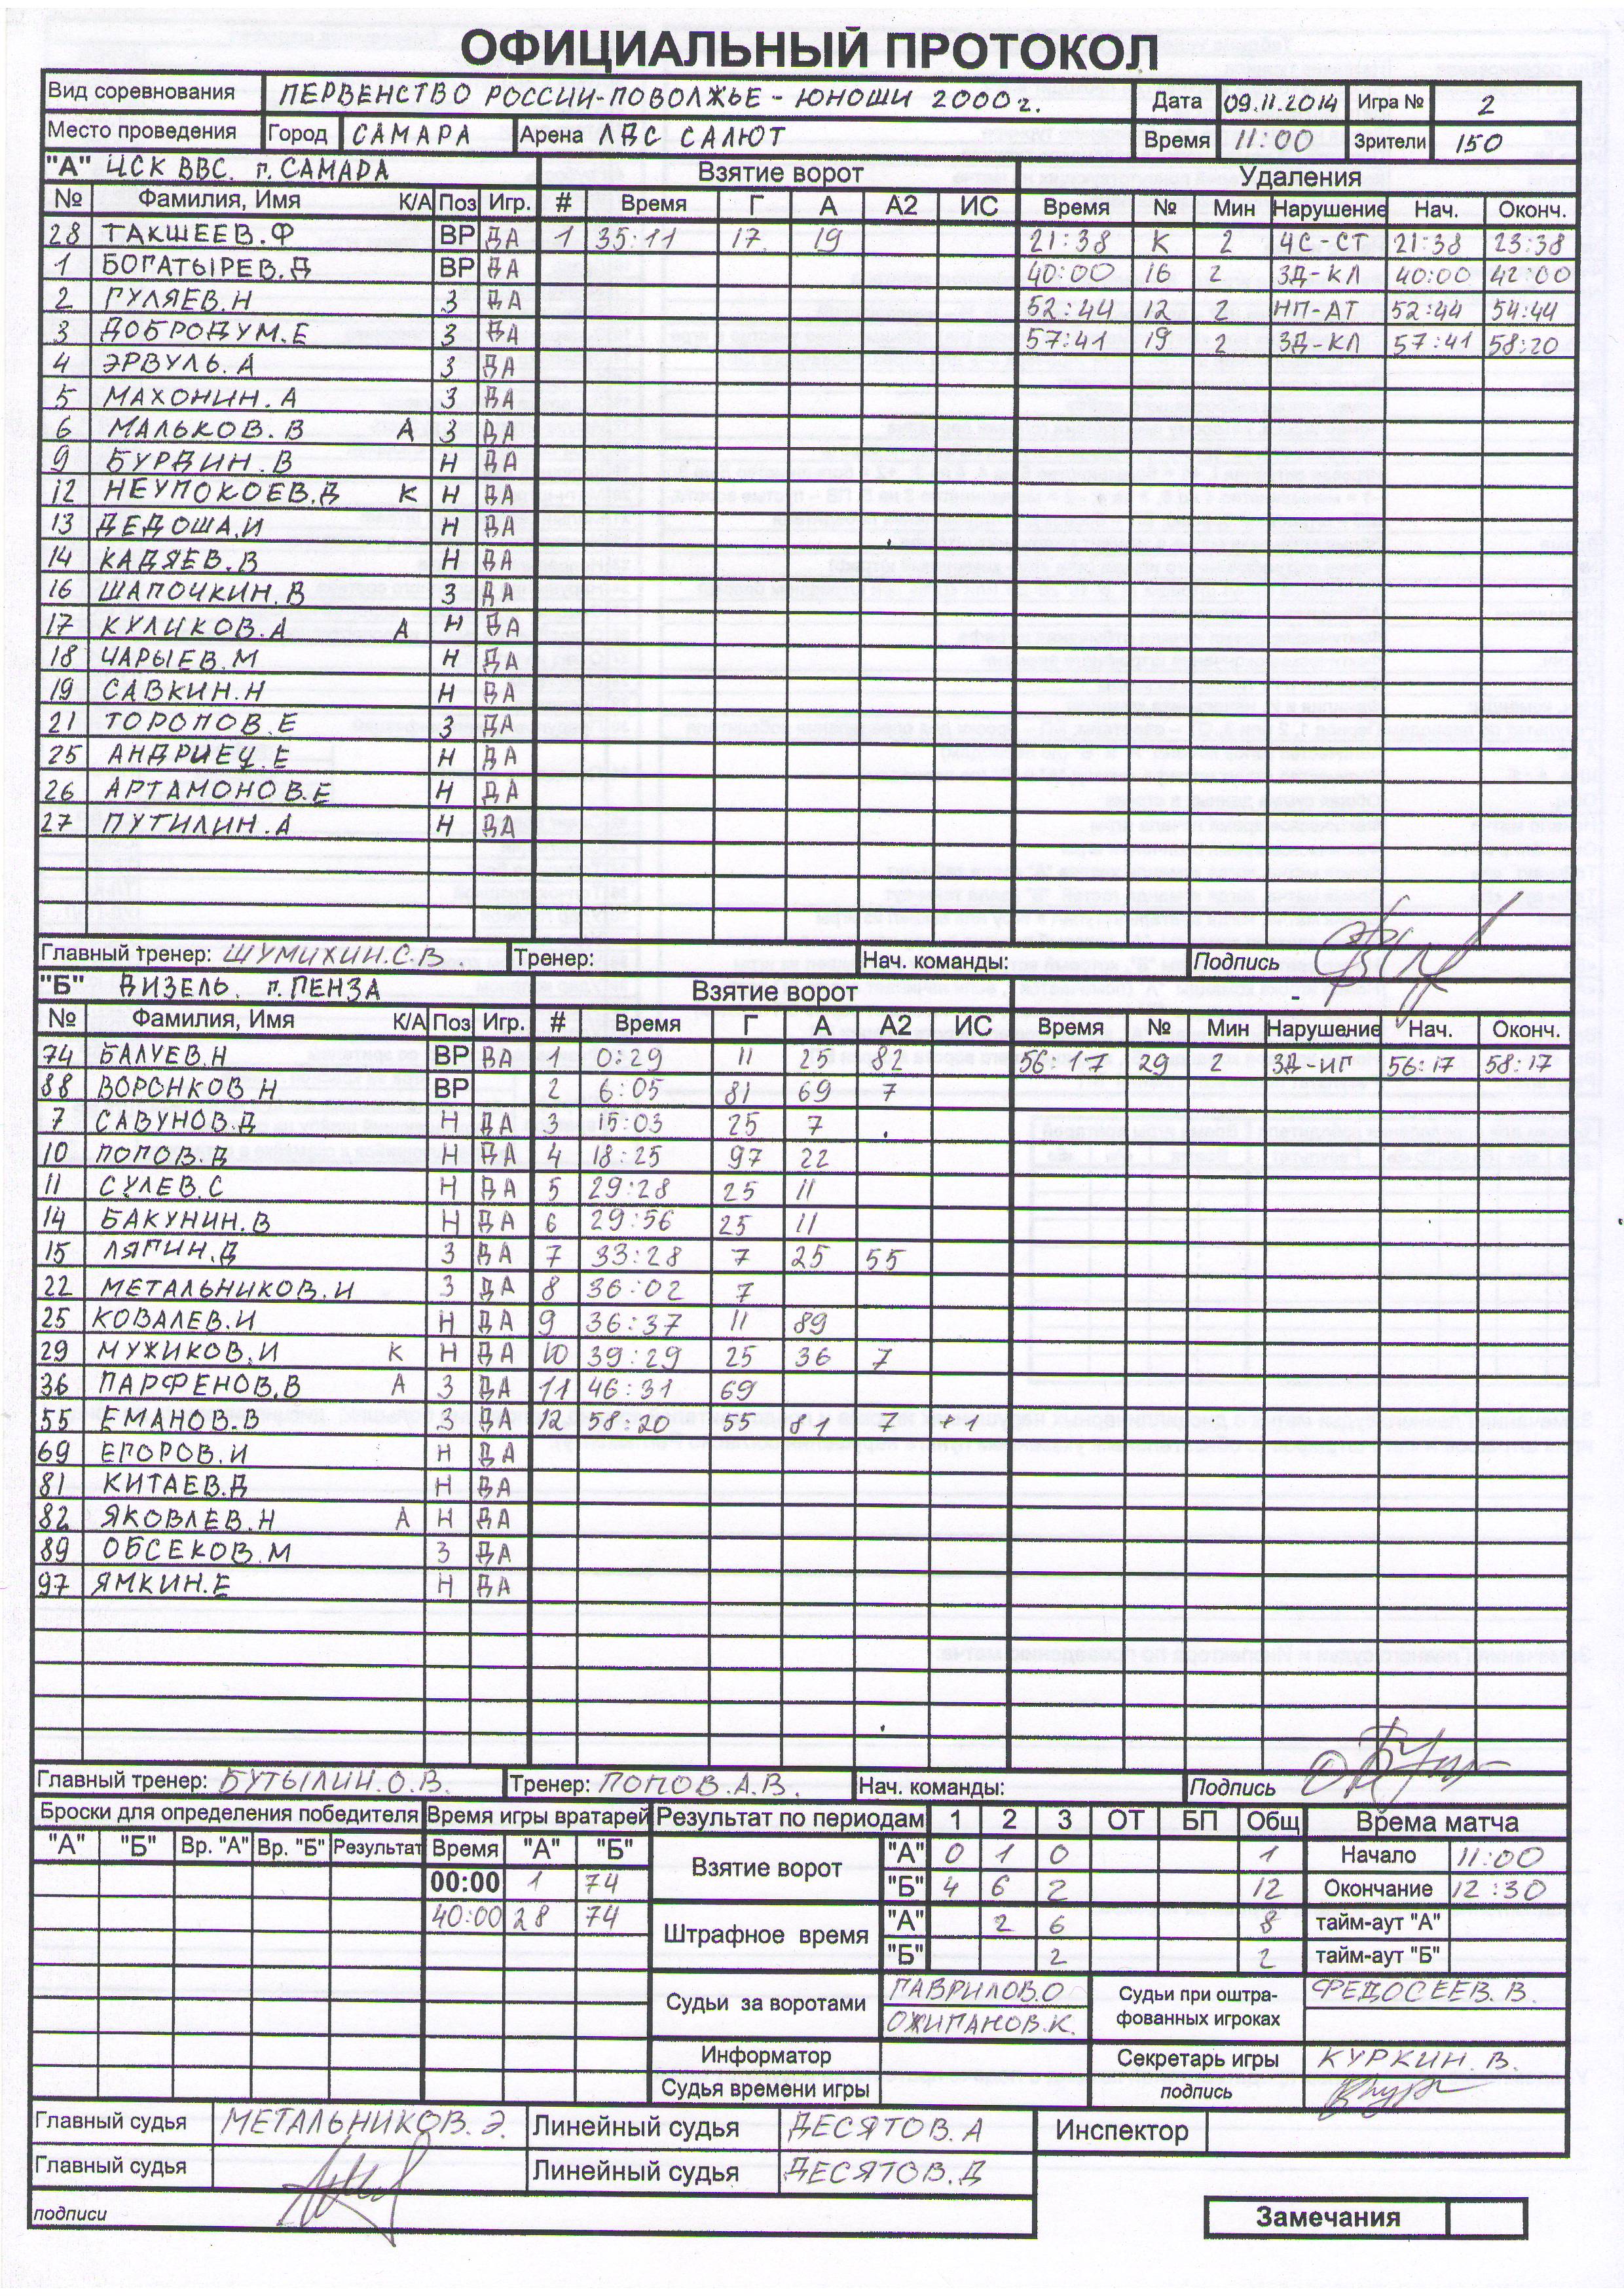 ОФИЦИАЛЬНЫЙ ПРОТОКОЛ
Вид соревнования ПЕРВЕНСТВО РОССИИ-ПОВОЛЖЬЕ - ЮНОШИ 2000г. Дата 09.11.2014 Игра № 2
Место проведения Город САМАРА Арена ЛДС САЛЮТ Время 11:00 Зрители 150
"А" ЦСК ВВС. г. САМАРА Взятие ворот Удаления
№ Фамилия, Имя К/А Поз Игр. # Время Г А А2 ИС Время № Мин Нарушение Нач. Оконч.
28 ТАКШЕЕВ.Ф ВР ДА 1 35:11 17 19 21:38 К 2 ЧС-СТ 21:38 23:38
1 БОГАТЫРЕВ.Д ВР ДА 40:00 16 2 ЗД-КЛ 40:00 42:00
2 ГУЛЯЕВ.Н З ДА 52:44 12 2 НП-АТ 52:44 54:44
3 ДОБРОДУМ.Е З ДА 57:41 19 2 ЗД-КЛ 57:41 58:20
4 ЭРВУЛЬ.А З ДА
5 МАХОНИН.А З ДА
6 МАЛЬКОВ.В А З ДА
9 БУРДИН.В Н ДА
12 НЕУПОКОЕВ.Д К Н ДА
13 ДЕДОША.И Н ДА
14 КАДЯЕВ.В Н ДА
16 ШАПОЧКИН.В З ДА
17 КУЛИКОВ.А А Н ДА
18 ЧАРЫЕВ.М Н ДА
19 САВКИН.Н Н ДА
21 ТОРОПОВ.Е З ДА
25 АНДРИЕЦ.Е Н ДА
26 АРТАМОНОВ.Е Н ДА
27 ПУТИЛИН.А Н ДА
Главный тренер: ШУМИХИН.С.В Тренер: Нач. команды: Подпись
"Б" ДИЗЕЛЬ. г. ПЕНЗА Взятие ворот
№ Фамилия, Имя К/А Поз Игр. # Время Г А А2 ИС Время № Мин Нарушение Нач. Оконч.
74 БАЛУЕВ.Н ВР ДА 1 0:29 11 25 82 56:17 29 2 ЗД-ИГ 56:17 58:17
88 ВОРОНКОВ Н ВР 2 6:05 81 69 7
7 САВУНОВ.Д Н ДА 3 15:03 25 7
10 ПОПОВ.Д Н ДА 4 18:25 97 22
11 СУЛЕВ.С Н ДА 5 29:28 25 11
14 БАКУНИН.В Н ДА 6 29:56 25 11
15 ЛЯПИН.Д З ДА 7 33:28 7 25 55
22 МЕТАЛЬНИКОВ.И З ДА 8 36:02 7
25 КОВАЛЕВ.И Н ДА 9 36:37 11 89
29 МУЖИКОВ.И К Н ДА 10 39:29 25 36 7
36 ПАРФЕНОВ.В А З ДА 11 46:31 69
55 ЕМАНОВ.В З ДА 12 58:20 55 81 7 +1
69 ЕГОРОВ.И Н ДА
81 КИТАЕВ.Д Н ДА
82 ЯКОВЛЕВ.Н А Н ДА
89 ОБСЕКОВ.М З ДА
97 ЯМКИН.Е Н ДА
Главный тренер: БУТЫЛИН.О.В. Тренер: ПОПОВ.А.В. Нач. команды: Подпись
Броски для определения победителя Время игры вратарей Результат по периодам 1 2 3 ОТ БП Общ Врема матча
"А" "Б" Вр. "А" Вр. "Б" Результат Время "А" "Б" Взятие ворот "А" 0 1 0 1 Начало 11:00
00:00 1 74 "Б" 4 6 2 12 Окончание 12:30
40:00 28 74 Штрафное время "А" 2 6 8 тайм-аут "А"
"Б" 2 2 тайм-аут "Б"
Судьи за воротами ГАВРИЛОВ.О Судьи при оштра-фованных игроках ФЕДОСЕЕВ.В.
ОЖИПАНОВ.К.
Информатор Секретарь игры КУРКИН.В.
Судья времени игры подпись
Главный судья МЕТАЛЬНИКОВ.Э. Линейный судья ДЕСЯТОВ.А Инспектор
Главный судья Линейный судья ДЕСЯТОВ.Д
подписи
Замечания